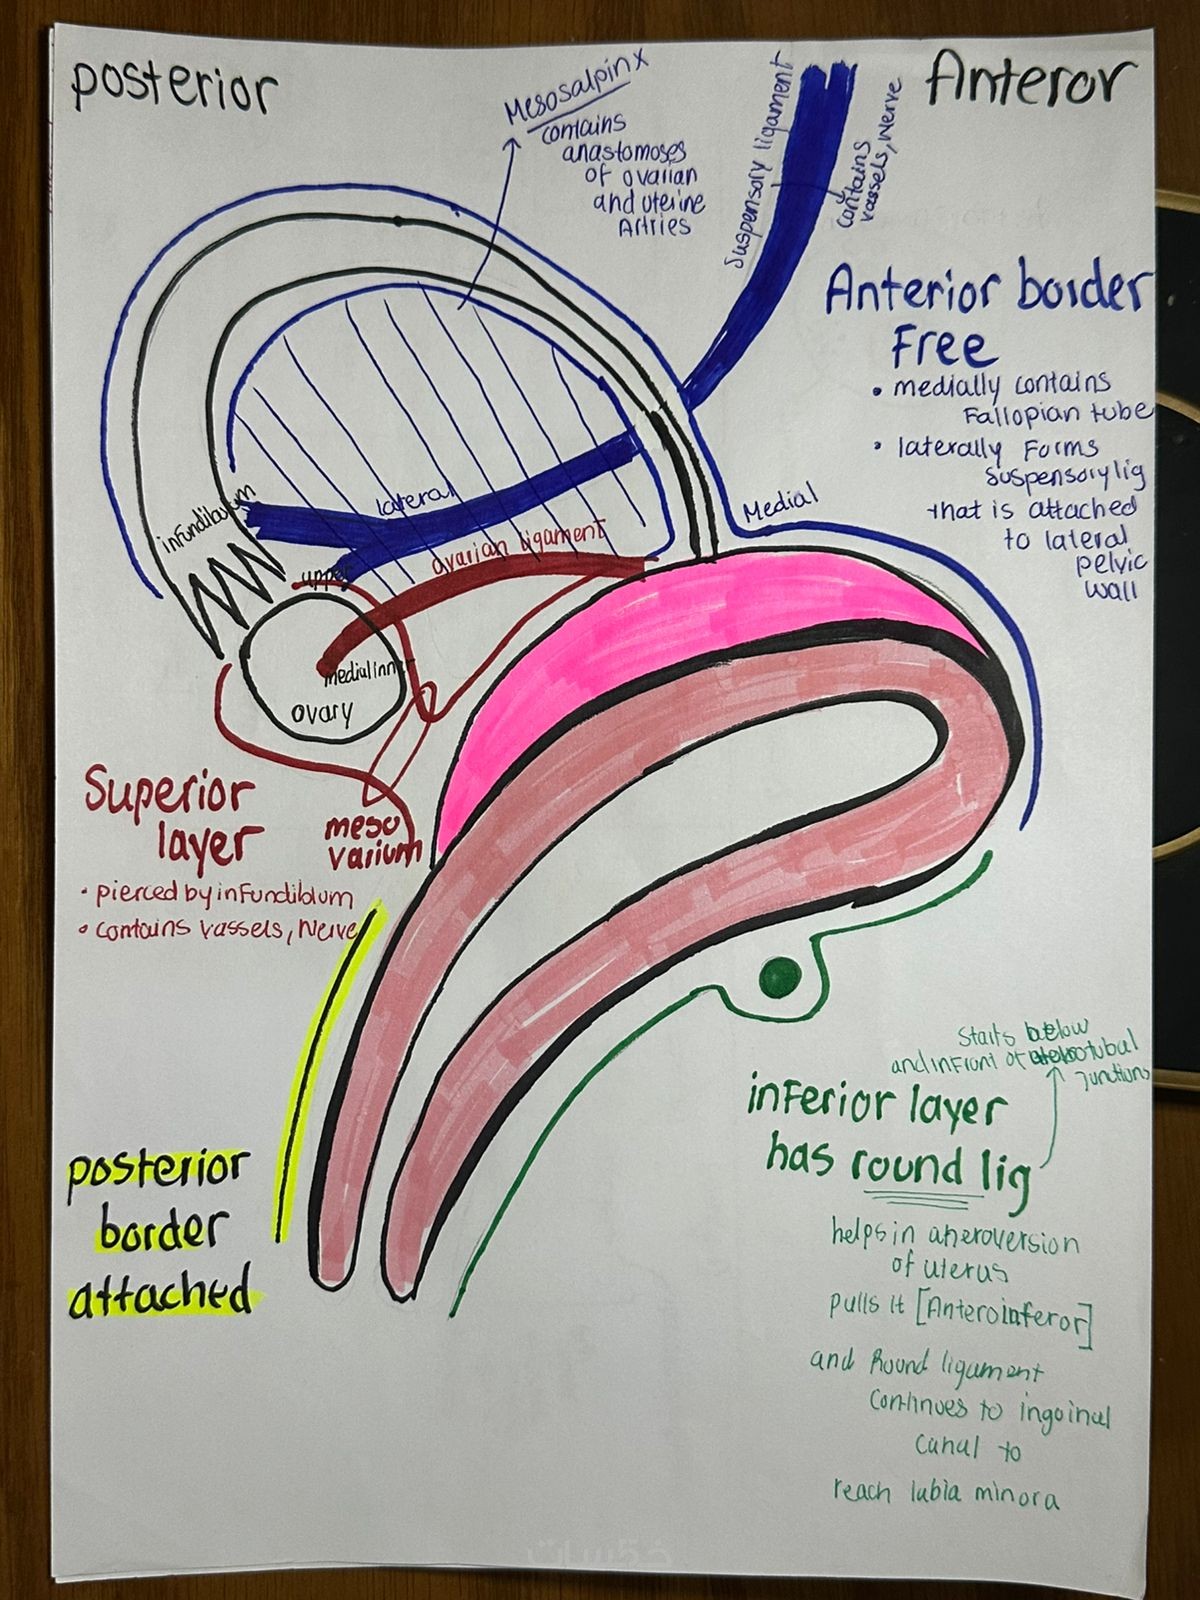 posterior
Anteror
Mesosalpinx
contains
anastomoses
of ovarian
and uterine
Artries
Suspensory ligament
contains
vassels, Nerve
Anterior border
Free
• medially contains
Fallopian tube
• laterally Forms
suspensory lig
that is attached
to lateral
pelvic
wall
Medial
infundibulum
lateral
ovarian ligament
upper
medial inner
ovary
Superior
layer
meso
varium
• pierced by infundiblum
• contains vassels, Nerve
posterior
border
attached
starts below
and infront of tubal
Junctions
inferior layer
has round lig
helps in aneroversion
of uterus
pulls it [Anteroinferor]
and Round ligament
continues to ingoinal
canal to
reach labia minora
خمسات